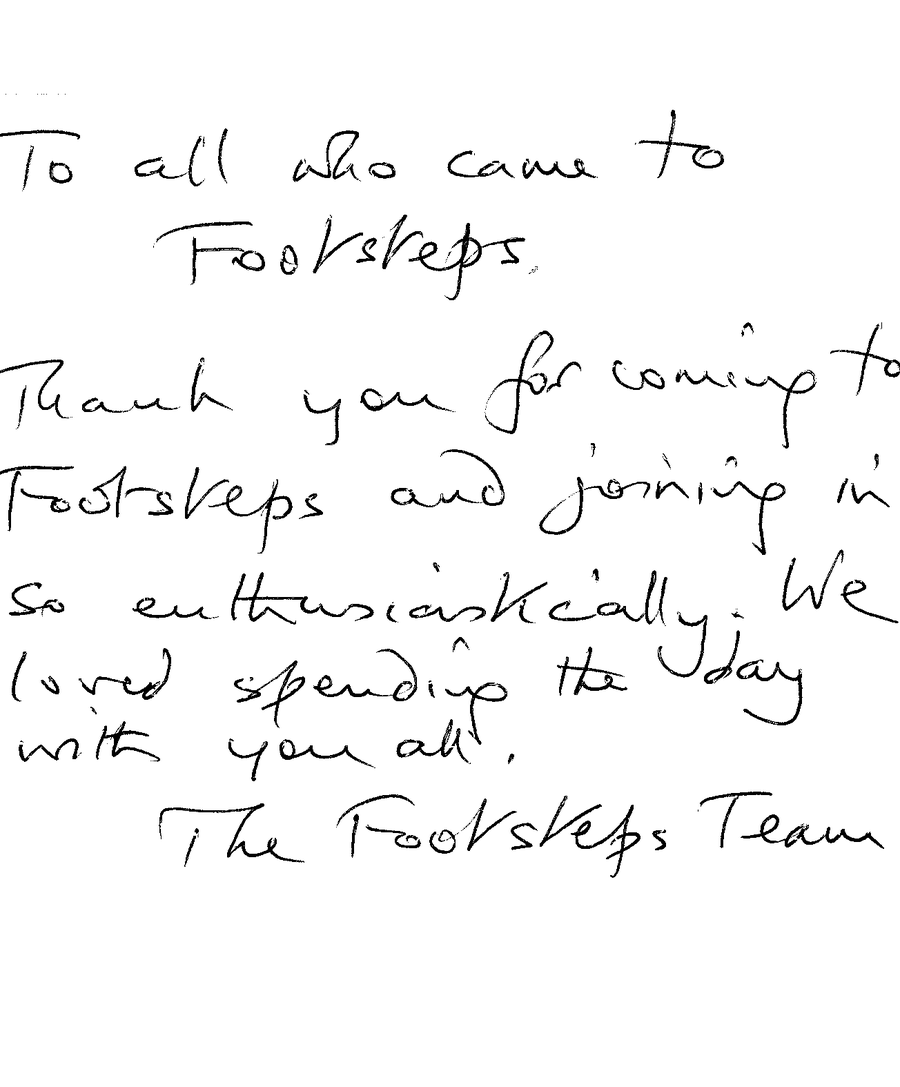 To all who came to
Footsteps.
Thank you for coming to
Footsteps and joining in
so enthusiastically. We
loved spending the day
with you all.
The Footsteps Team